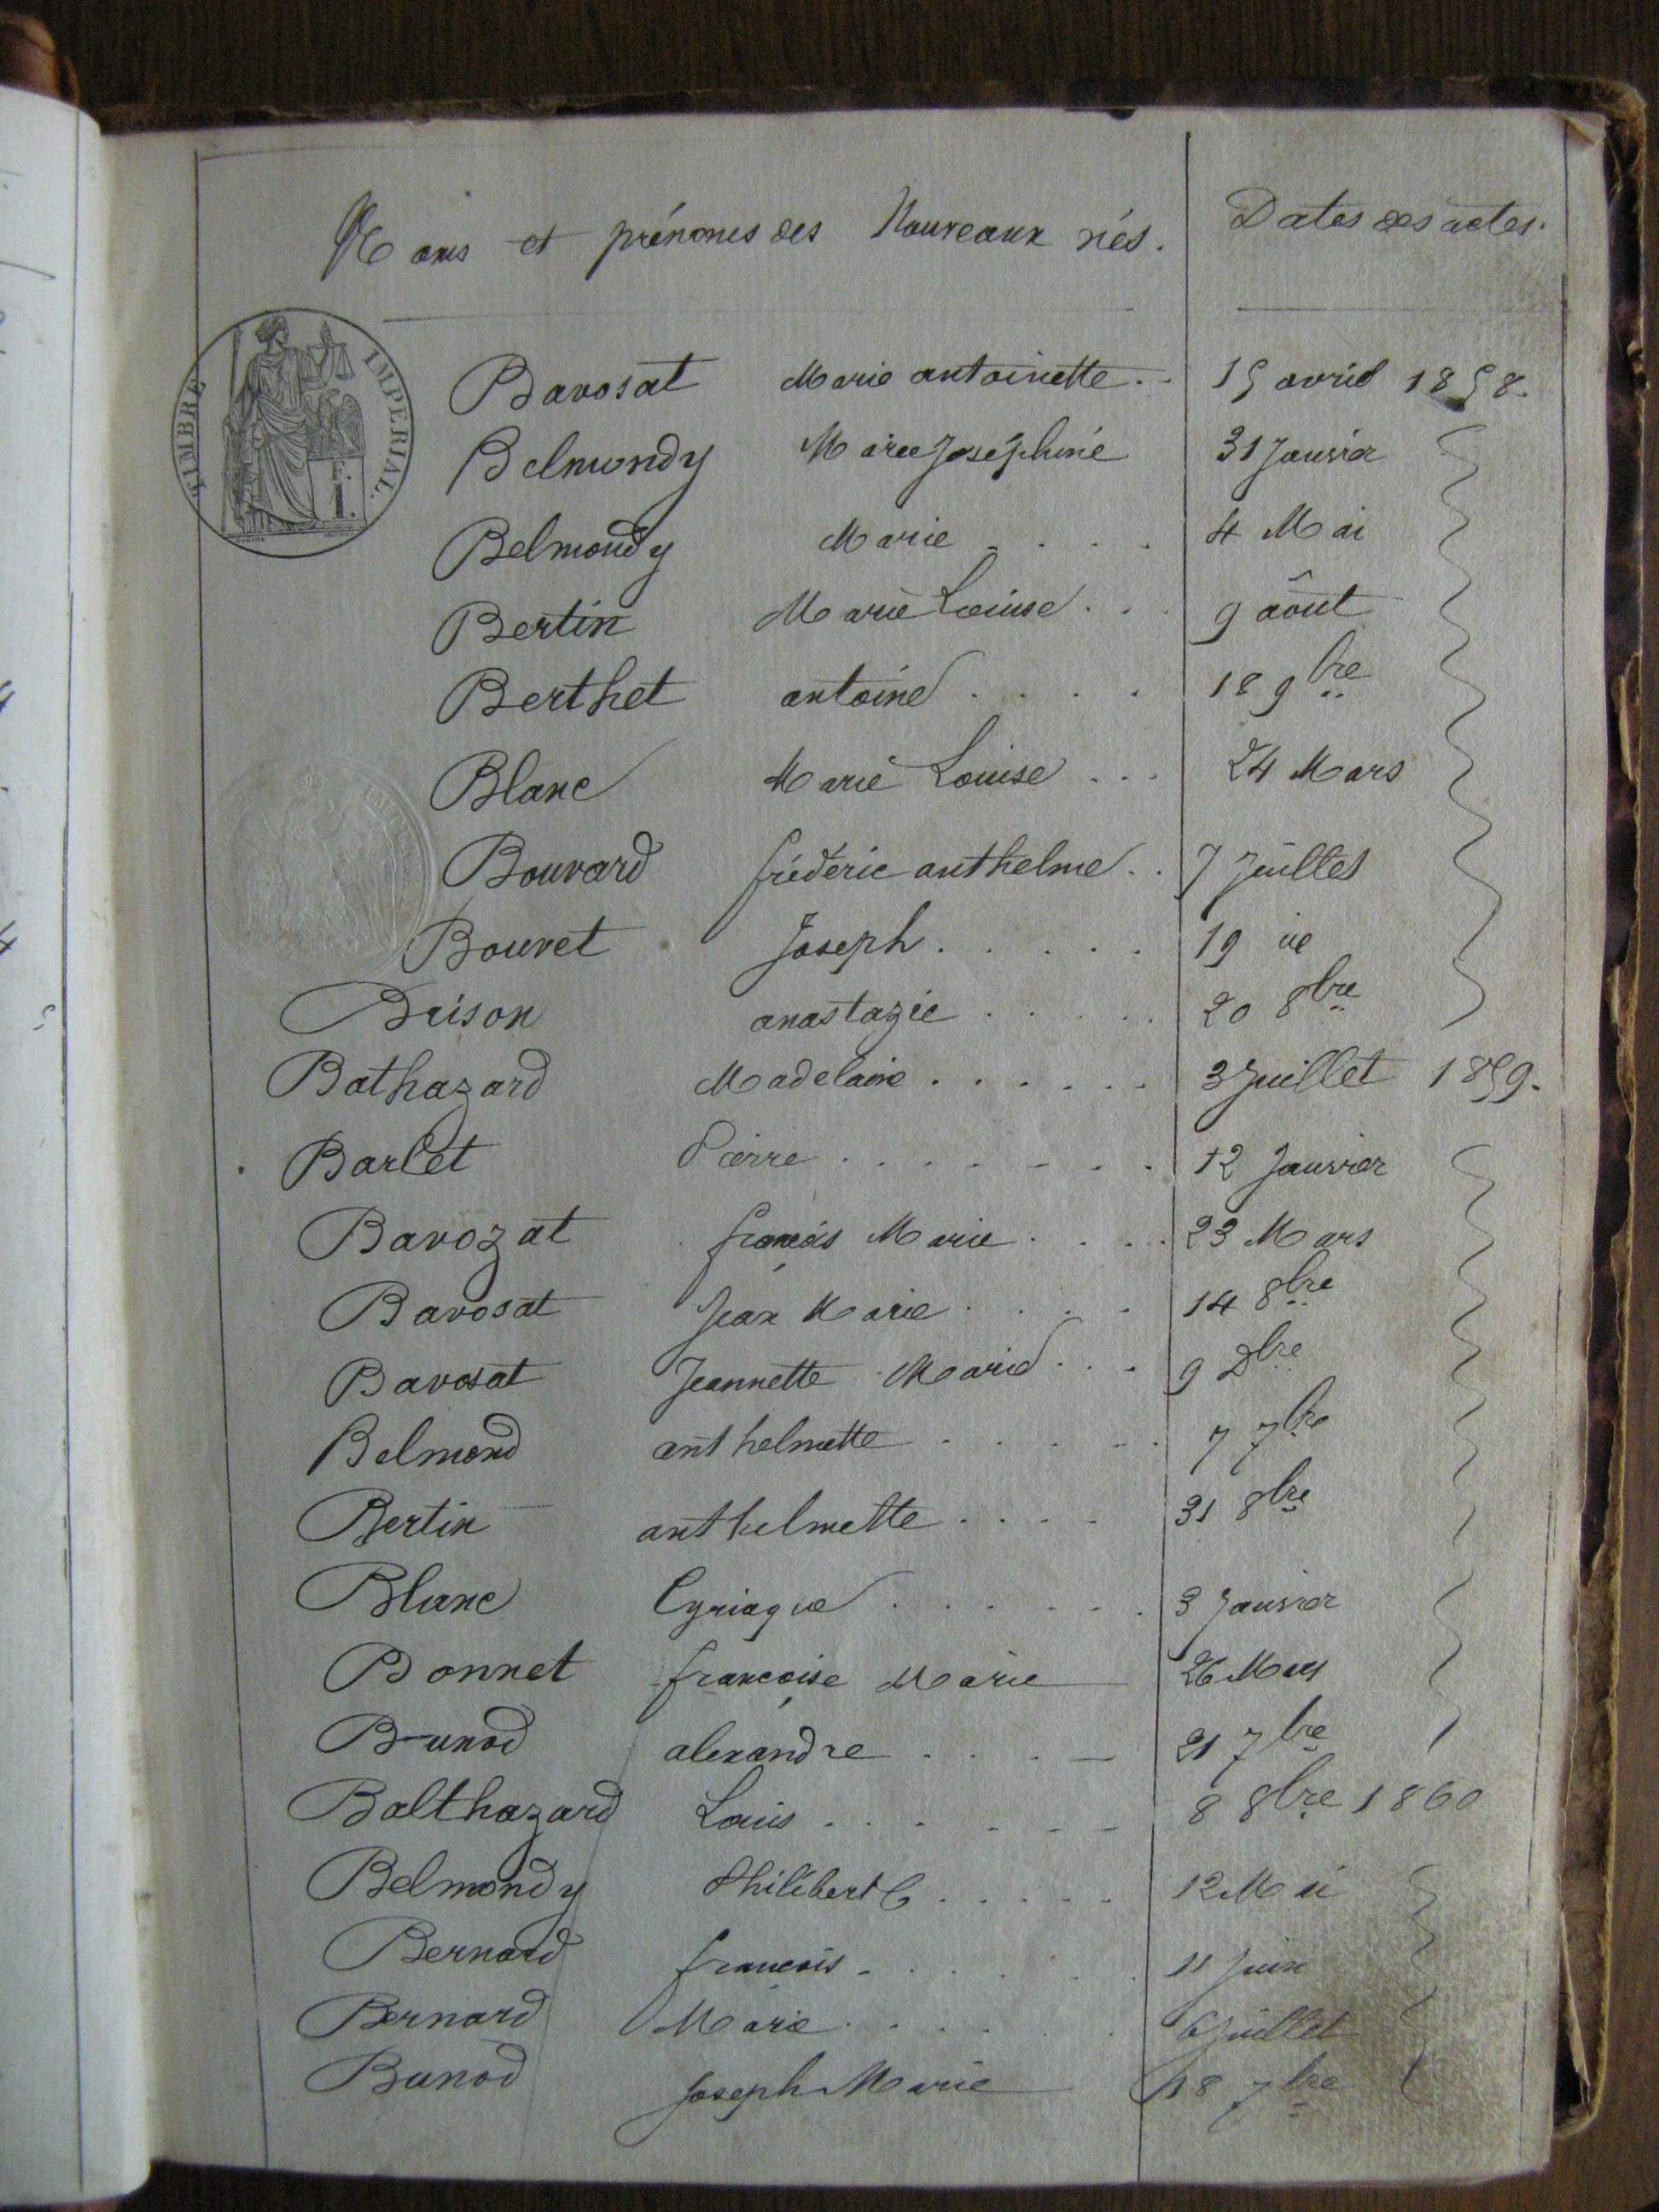 Noms et prénoms des Nouveaux nés. Dates des actes.
TIMBRE IMPERIAL.
Bavosat Marie antoinette . . 15 avril 1858.
Belmondy Marie Joséphine 31 Janvier
Belmondy Marie . . . . 4 Mai
Bertin Marie Louise . . . 9 août
Berthet antoine . . . . 18 9bre
Blanc Marie Louise . . . 24 Mars
Bouvard frédéric anthelme . . 7 Juillet
Bouvet Joseph . . . . . 19 id
Brison anastazie . . . . . 20 8bre
Bathazard Madelaine . . . . . . 3 Juillet 1859.
Barlet Pierre . . . . . . . 12 Janvier
Bavozat françois Marie . . . . 23 Mars
Bavosat Jean Marie . . . . 14 8bre
Bavosat Jeannette Marie . . . 9 Dbre
Belmond anthelmette . . . . . 7 7bre
Bertin anthelmette . . . . 31 8bre
Blanc Cyriaque . . . . . . 3 Janvier
Bonnet françoise Marie 26 Mars
Bunod alexandre . . . . 21 7bre
Balthazard Louis . . . . . . 8 8bre 1860
Belmondy Philibert C . . . . . 12 Mai
Bernard françois . . . . . . 11 Juin
Bernard Marie . . . . . . 6 Juillet
Bunod Joseph Marie 18 7bre